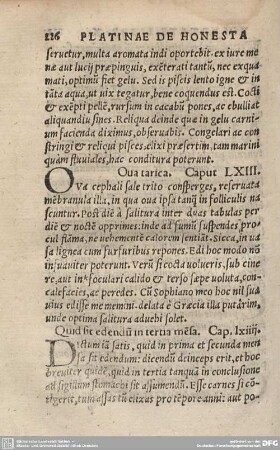 226 PLATINAE DE HONESTA
seruetur, multa aromata indi oportebit. ex iure me
næ aut lucij præpinguis, exēterati tantū, nec exqua
mati, optimū fiet gelu. Sed is piscis lento igne & in
tāta aqua, ut uix tegatur, bene coquendus est. Cocti
& exēpti pellē, rursum in cacabū pones, ac ebulliat
aliquandiu sines. Reliqua deinde quæ in gelu carni=
um facienda diximus, obseruabis. Congelari ac con
stringi & reliqui pisces, elixi præsertim, tam marini
quàm fluuiales, hac conditura poterunt.
Oua tarica. Caput LXIII.
OVa cephali sale trito consperges, reseruata
mēbranula illa, in qua oua ipsa tanq̄ in folliculis na
scuntur. Post diē à salitura inter duas tabulas per
diē & noctē opprimes: inde ad fumū suspendes pro
cul flāma, ne uehementē calorem sentiāt. Sicca, in ua
sa lignea cum furfuribus repones. Edi hoc modo nō
in suauiter poterunt. Verū si cocta uolueris, sub cine
re, aut in foculari calido & terso sæpe uoluta, con=
calefacies, ac peredes. Cū Sophiano meo hoc nil sua
uius edisse me memini. delata è Græcia illa putarim,
unde optima salitura aduehi solet.
Quid sit edendū in tertia mēsa. Cap. lxiiij.
DIctum iā satis, quid in prima et secunda men
sa sit edendum: dicendū deinceps erit, et hoc
breuiter quidē, quid in tertia tanquā in conclusione
ad sigillum stomachi sit assumendū. Esse carnes si cō
tigerit, tum assas tū elixas pro tēpore anni: aut po=